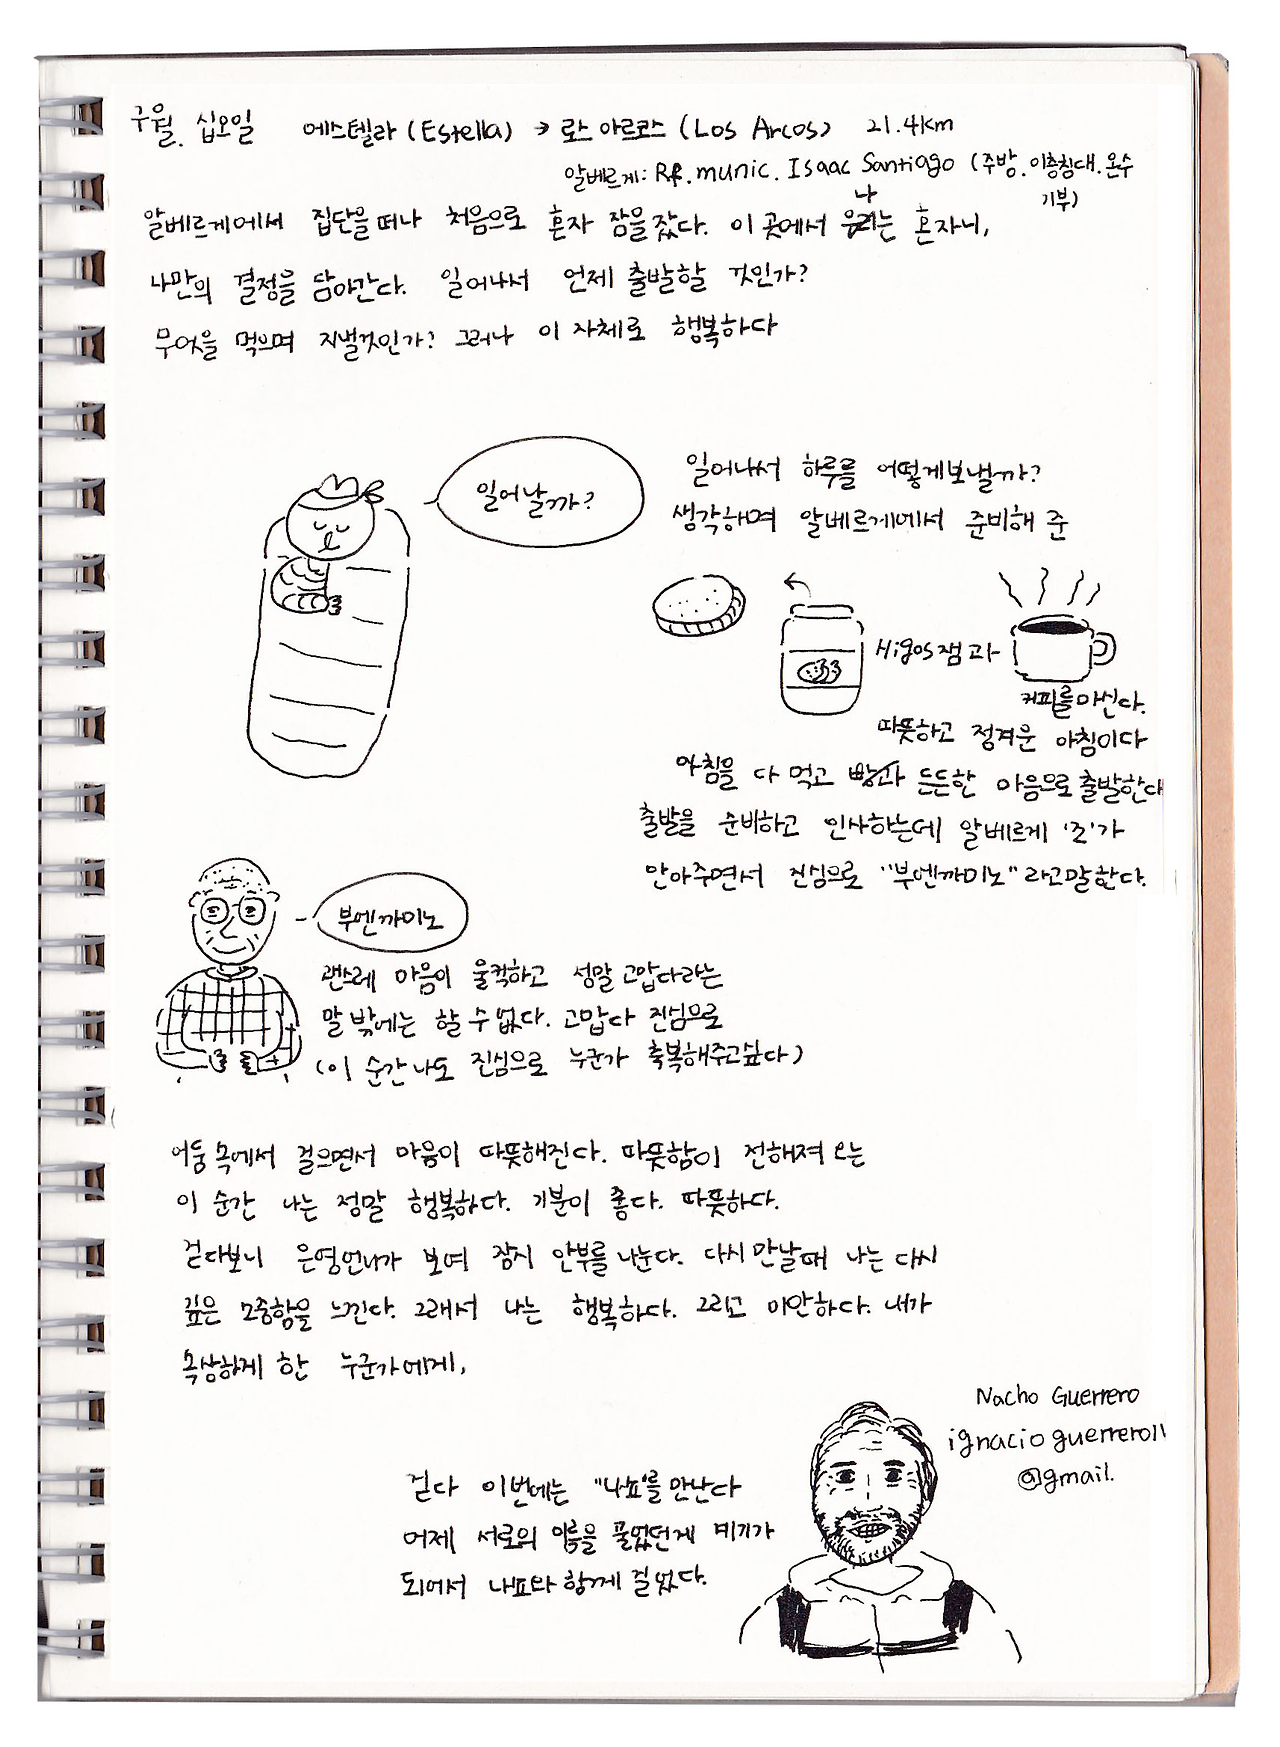 구월. 십오일 에스텔라 (Estella) → 로스 아르코스 (Los Arcos) 21.4km
알베르게: Rf. munic. Isaac Santiago (주방. 이층침대. 온수
기부)
알베르게에서 집단을 떠나 처음으로 혼자 잠을 잤다. 이 곳에서 나는 혼자니,
나만의 결정을 담아간다. 일어나서 언제 출발할 것인가?
무엇을 먹으며 지낼것인가? 그러나 이 자체로 행복하다
일어날까?
일어나서 하루를 어떻게보낼까?
생각하며 알베르게에서 준비해 준
Higos잼과
커피를마신다.
따뜻하고 정겨운 아침이다
아침을 다 먹고 든든한 마음으로 출발한다
출발을 준비하고 인사하는데 알베르게 '조'가
안아주면서 진심으로 "부엔까미노"라고말한다.
부엔까미노
괜스레 마음이 울컥하고 정말 고맙다라는
말 밖에는 할 수 없다. 고맙다 진심으로
(이 순간 나도 진심으로 누군가 축복해주고싶다)
어둠 속에서 걸으면서 마음이 따뜻해진다. 따뜻함이 전해져 오는
이 순간 나는 정말 행복하다. 기분이 좋다. 따뜻하다.
걷다보니 은영언니가 보여 잠시 안부를 나눈다. 다시 만날때 나는 다시
깊은 소중함을 느낀다. 그래서 나는 행복하다. 그리고 미안하다. 내가
속상하게 한 누군가에게,
Nacho Guerrero
ignacioguerrero11
@gmail.
걷다 이번에는 "나쵸'를 만난다
어제 서로의 이름을 물었던게 계기가
되어서 나쵸와 함께 걸었다.